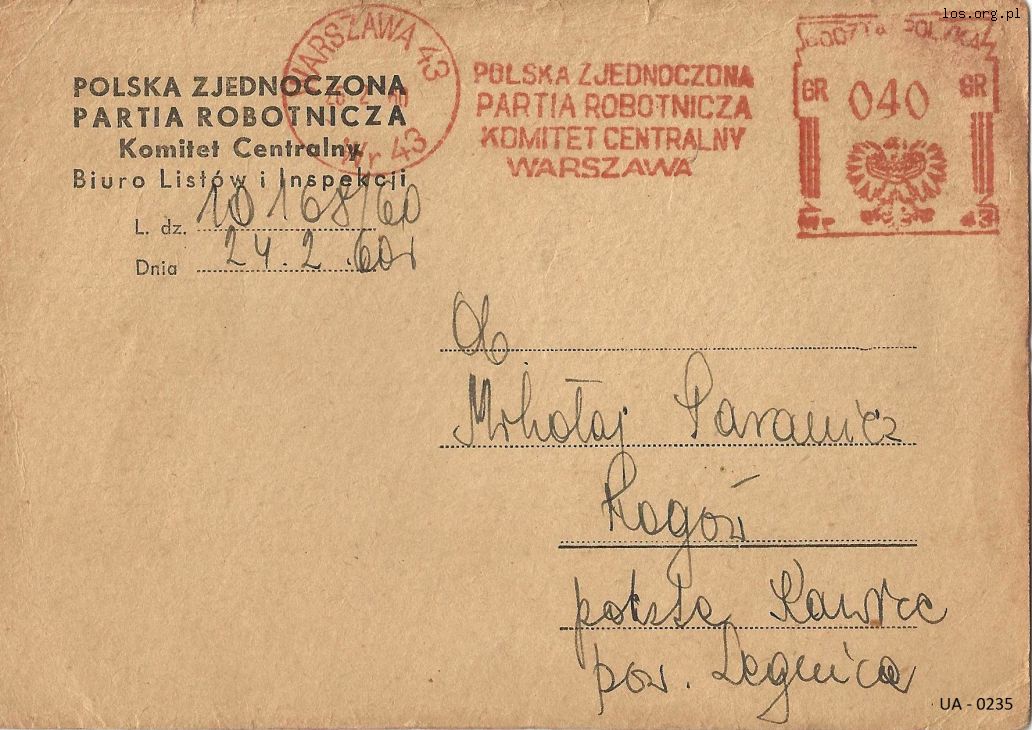 los.org.pl
POLSKA ZJEDNOCZONA
PARTIA ROBOTNICZA
Komitet Centralny
Biuro Listów i Inspekcji
L. dz. 10168/60
Dnia 24.2.60r
WARSZAWA 43
Nr 43
POLSKA ZJEDNOCZONA
PARTIA ROBOTNICZA
KOMITET CENTRALNY
WARSZAWA
POCZTA POLSKA
GR 040 GR
Nr 43
Ob.
Mikołaj Paranicz
Rogów
poczta Kawice
pow. Legnica
UA - 0235